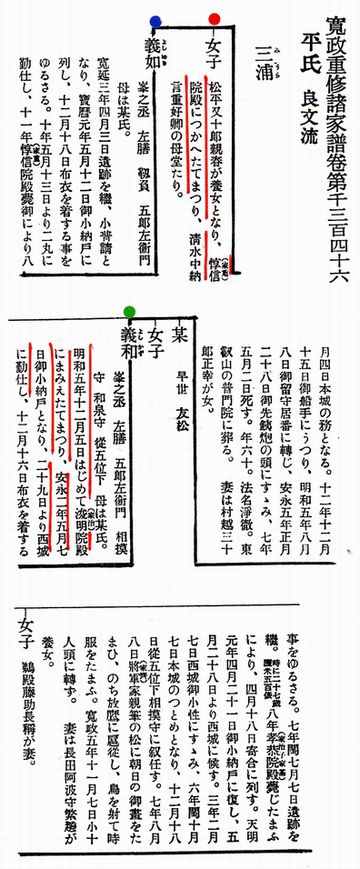 寛政重修諸家譜巻第千三百四十六
平氏 良文流
三浦
みうら
女子
松平又十郎親春が養女となり、惇信
(家重)
院殿につかへたてまつり、清水中納
言重好卿の母堂たり。
義如
峯之丞 左膳 靱負 五郎左衛門
母は某氏。
寛延三年四月三日遺跡を継、小普請と
なり、宝暦元年五月十二日御小納戸に
列し、十二月十八日布衣を着する事を
ゆるさる。十年五月十三日より二丸に
勤仕し、十一年惇信院殿薨御により八
(家重)
月四日本城の務となる。十二年十二月
十五日御船手にうつり、明和五年八月
八日御留守居番に転じ、安永五年正月
二十八日御先鉄炮の頭にすゝみ、七年
五月二日死す。年六十。法名浄徹。東
叡山の普門院に葬る。 妻は村越三十
郎正幸が女。
某
早世 友松
女子
義和
峯之丞 左膳 五郎左衛門 相摸
守 和泉守 従五位下 母は某氏。
明和五年十二月五日はじめて浚明院殿
(家治)
にまみえたてまつり、安永二年五月七
日御小納戸となり、二十九日より西城
に勤仕し、十二月十六日布衣を着する
事をゆるさる。七年閏七月七日遺跡を
継。時に二十七歳 廩米五百俵 八年孝恭院殿薨じたまふ
により、四月十八日寄合に列す。天明
元年四月二十一日御小納戸に復し、五
月二十八日より西城に候す。三年二月
七日西城御小性にすゝみ、六年閏十月
七日本城のつとめとなり、十二月十八
日従五位下相摸守に叙任す。七年八月
八日将軍家親筆の松に朝日の御画をた
まひ、のち放鷹に扈従し、鳥を射て時
服をたまふ。寛政五年十一月七日小十
人頭に転ず。 妻は長田阿波守繁趬が
養女。
女子 鵜殿藤助長称が妻。